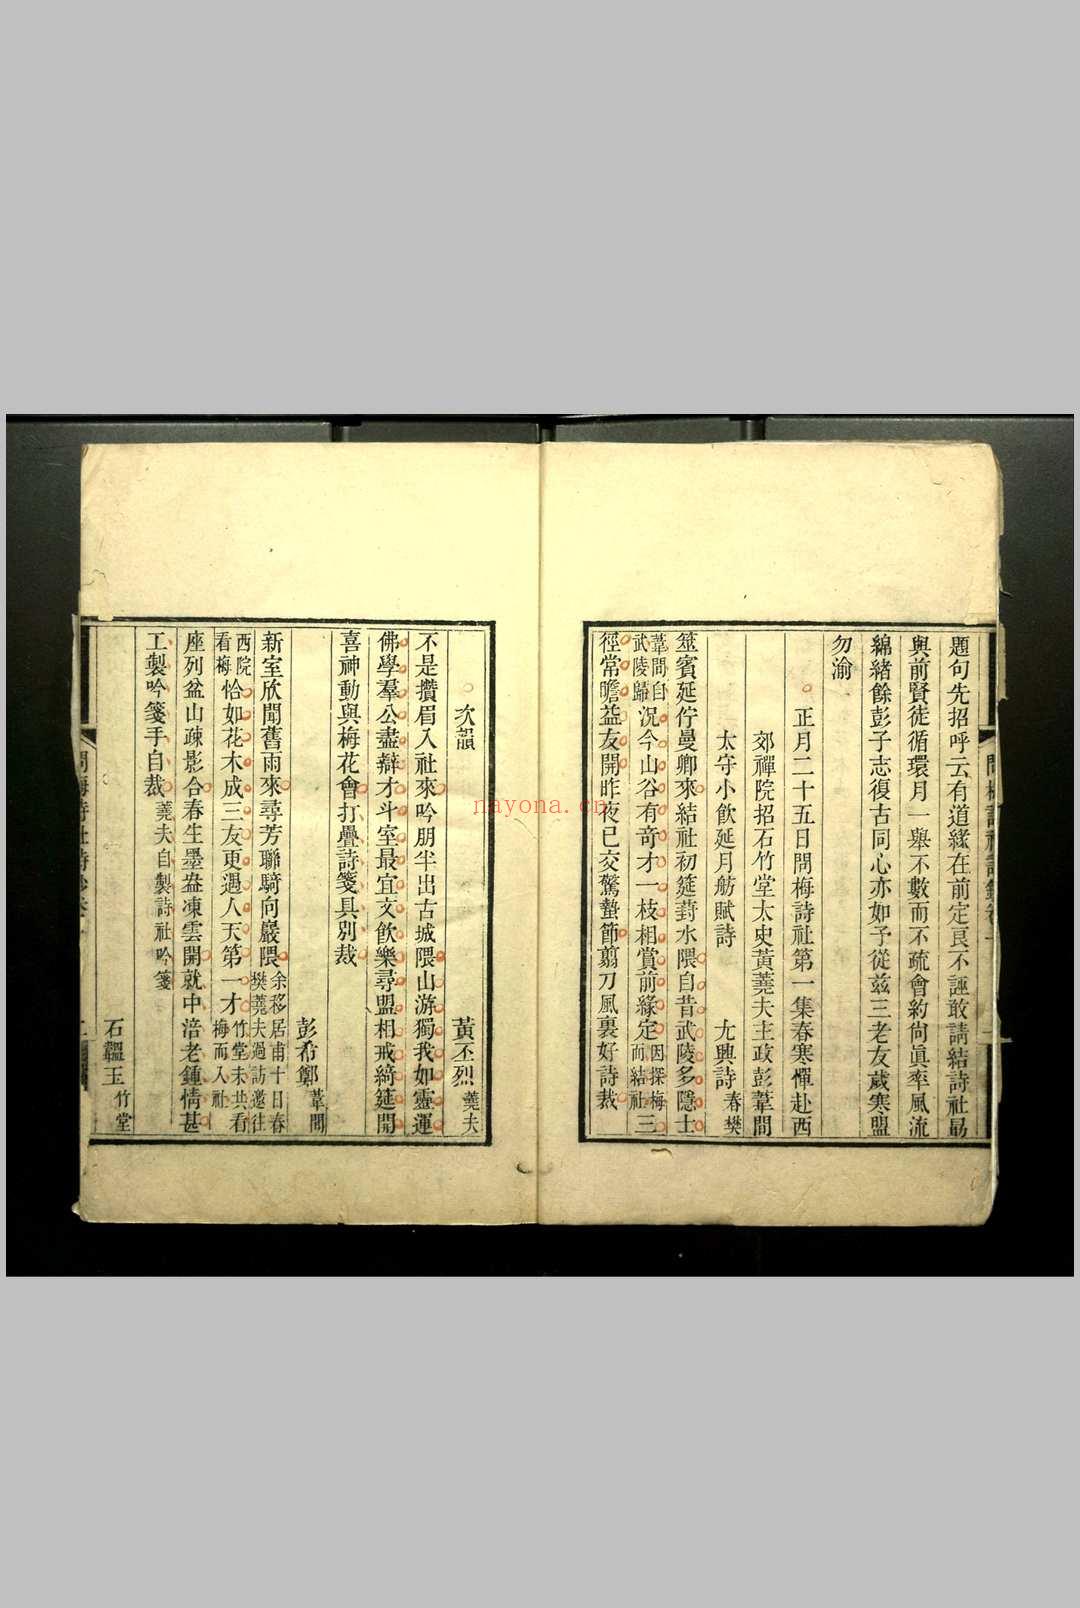 題句先招呼云有道緣在前定良不誣敢請結詩社勗
與前賢徒循環月一舉不數而不疏會約尙眞率風流
綿緒餘彭子志復古同心亦如予從茲三老友歲寒盟
勿渝
正月二十五日問梅詩社第一集春寒憚赴西
郊禪院招石竹堂太史黃蕘夫主政彭葦間
太守小飲延月舫賦詩 尤興詩 春樊
筮賓延佇曼卿來結社初筵葑水隈自昔武陵多隱士
葦間自
武陵歸 況今山谷有奇才一枝相賞前緣定 因探梅
而結社 三
徑常瞻益友開昨夜已交驚蟄節翦刀風裏好詩裁
次韻
黃丕烈 蕘夫
不是攢眉入社來吟朋半出古城隈山游獨我如靈運
佛學羣公盡辯才斗室最宜文飲樂尋盟相戒綺筵開
喜神動與梅花會打疊詩箋具別裁
彭希鄭 葦間
新室欣聞舊雨來尋芳聯騎向巖隈 余移居甫十日春
樊蕘夫過訪邀往
西院
看梅 恰如花木成三友更遇人天第一才 竹堂未共看
梅而入社
座列盆山疎影合春生墨盎凍雲開就中涪老鍾情甚
工製吟箋手自裁 蕘夫自製詩社吟箋
石韞玉 竹堂
問梅詩社詩鈔卷一
nayona.cn